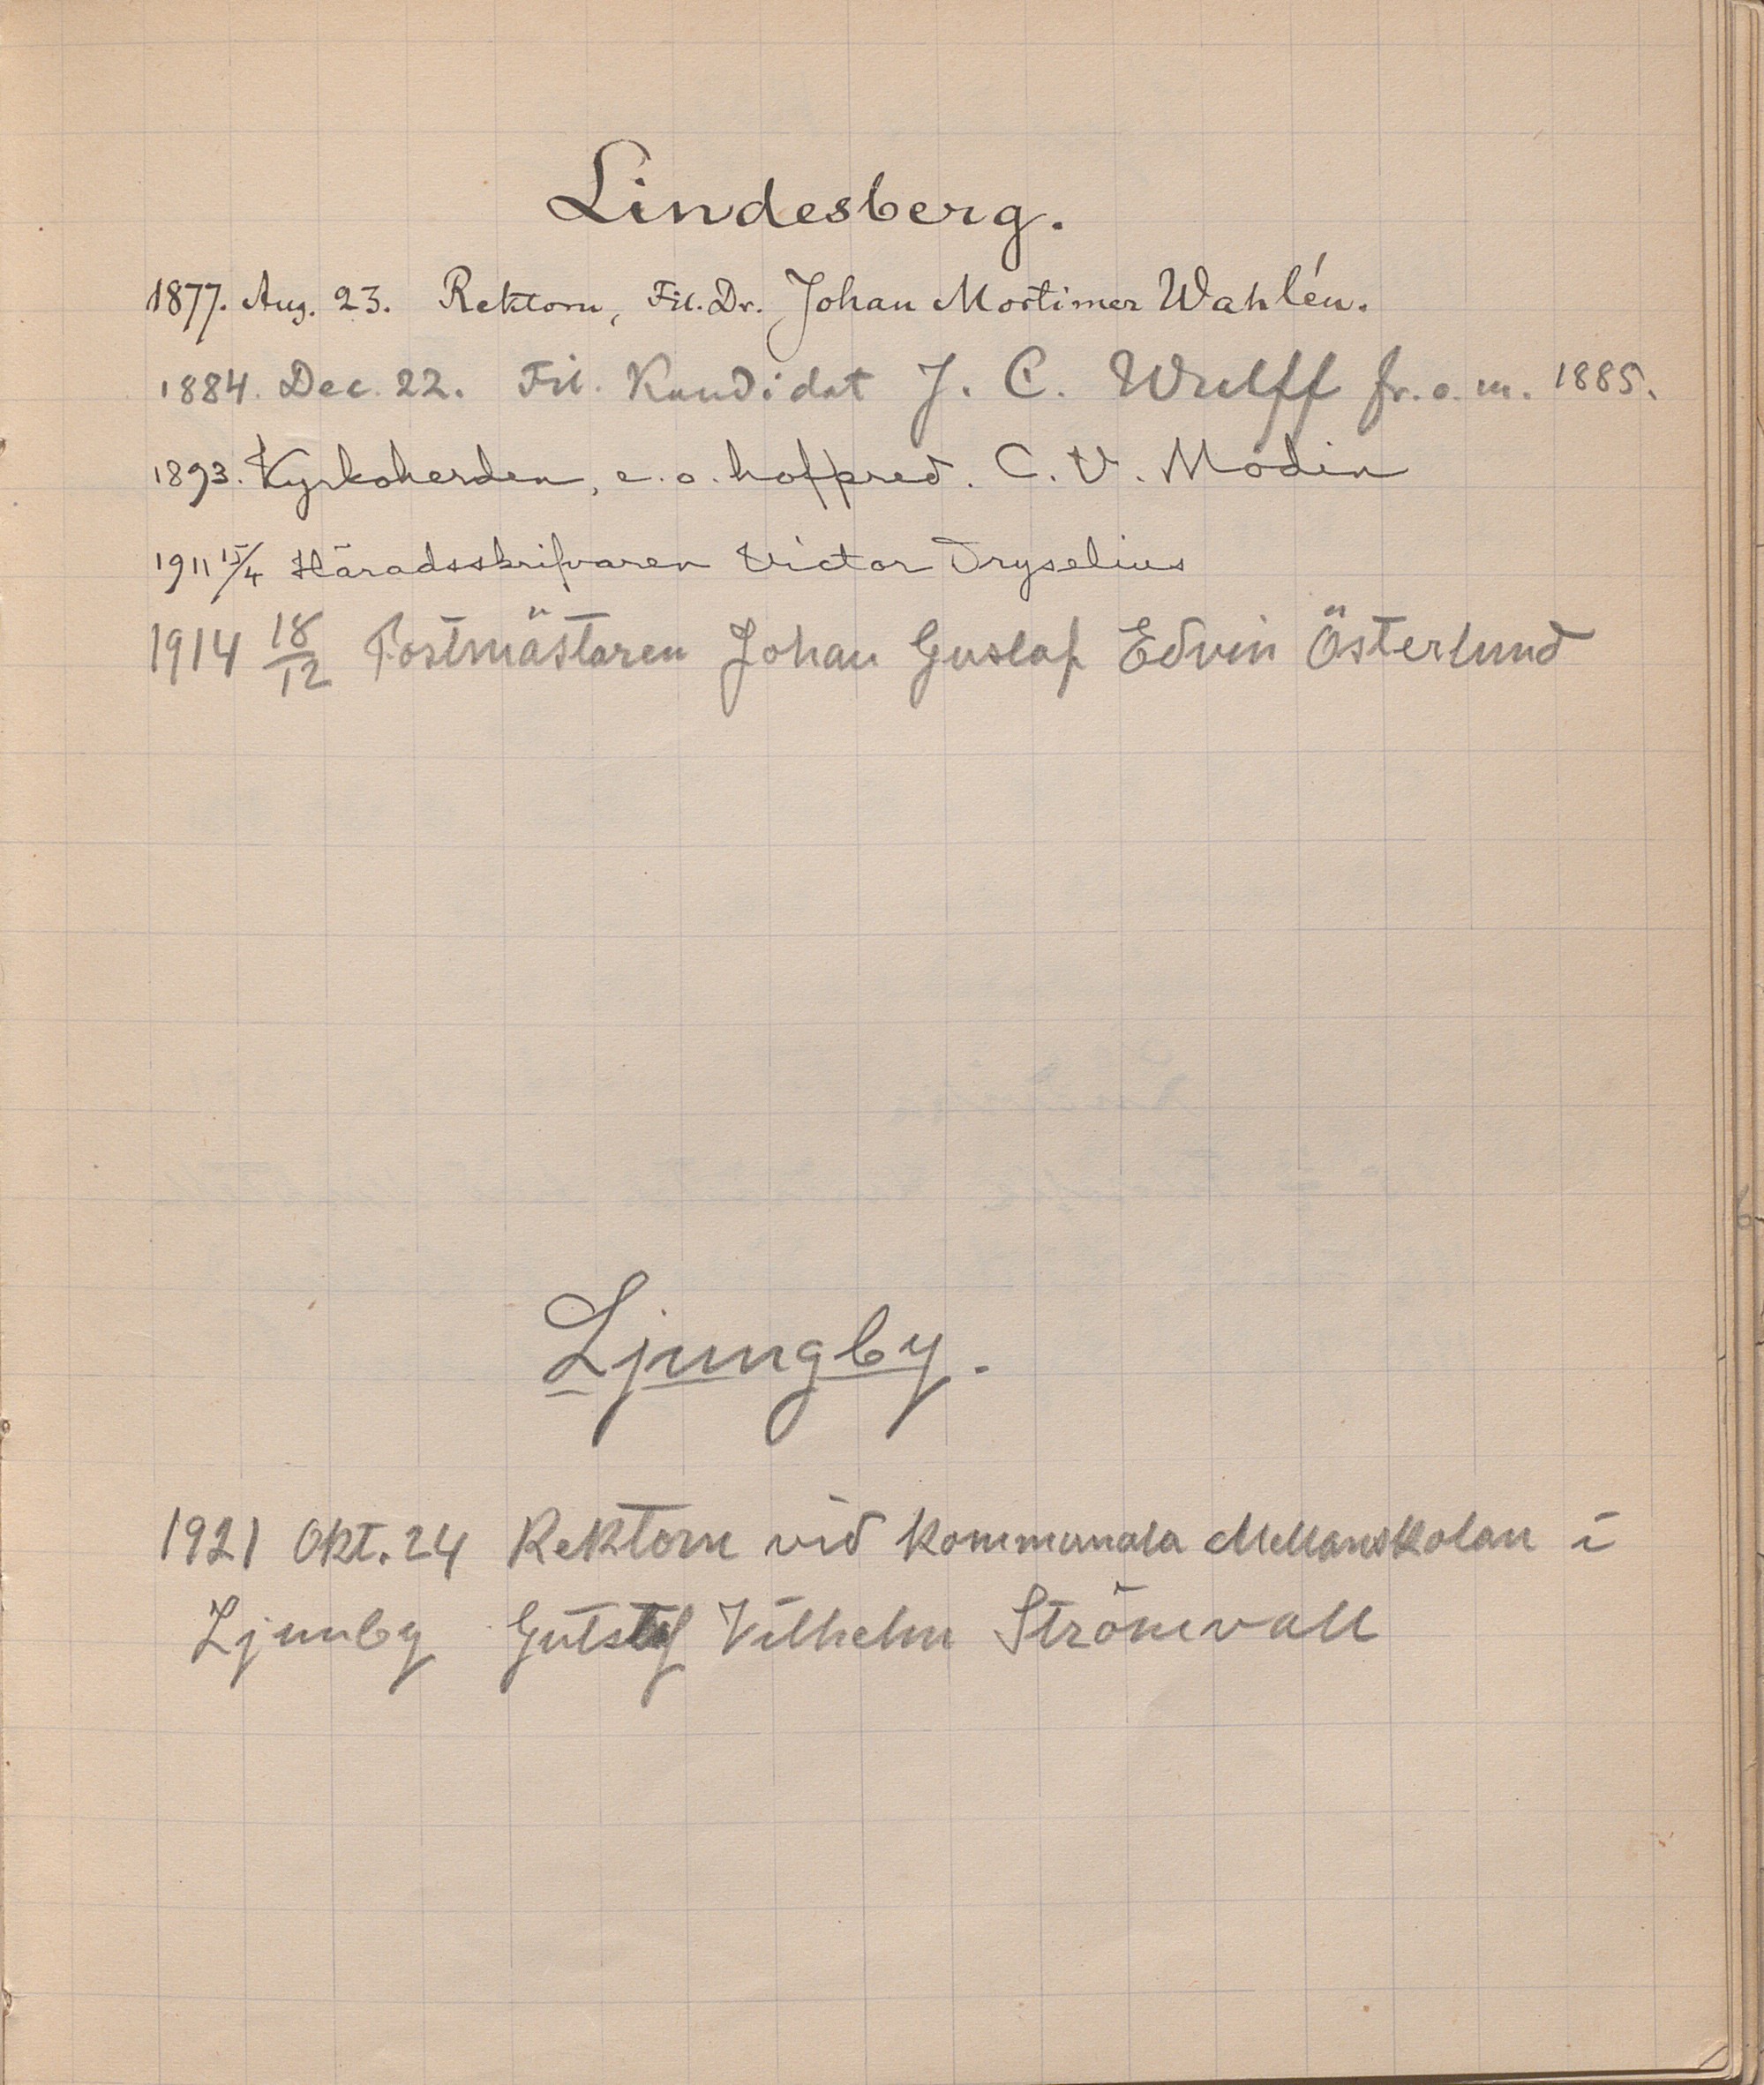 Lindesberg.
1877. Aug. 23. Rektorn, Fil. Dr. Johan Mortimer Wahlén.
1884. Dec. 22. Fil. Kandidat J. C. Wulff fr. o. m. 1885.
1893. Kyrkoherden, e. o. hofpred. C. V. Modin
1911 15/4 Häradsskrifvaren Victor Dryselius
1914 18/12 Postmästaren Johan Gustaf Edvin Österlund
Ljungby.
1921 Okt. 24 Rektorn vid kommunala Mellanskolan i
Ljunby Vilhelm Strömvall